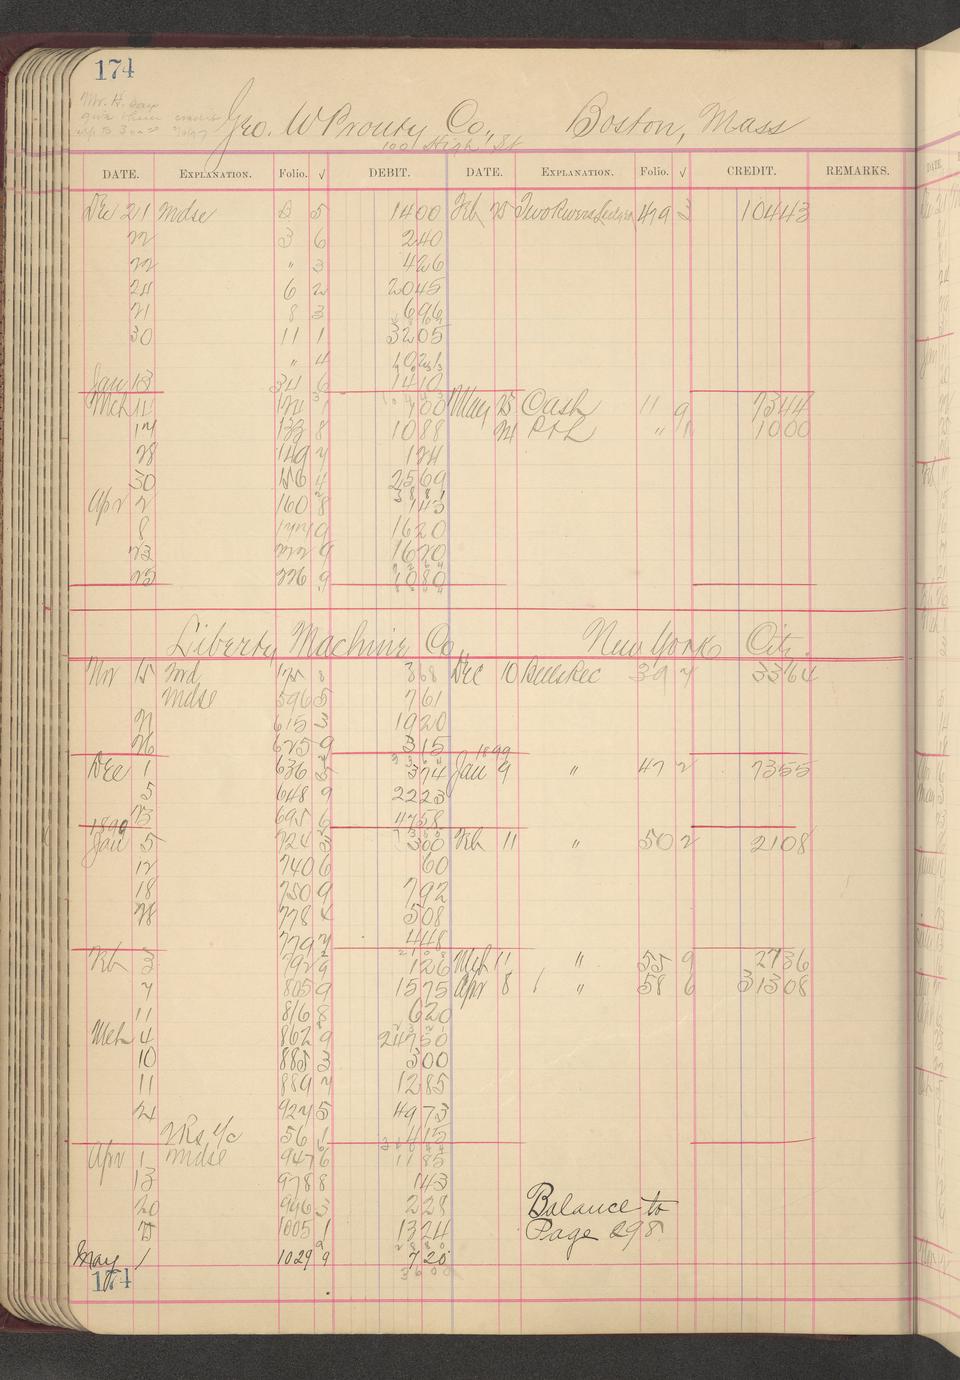 174
Mr. H. says
give them
up to 30
Geo. W Prouty Co., Boston, Mass
100 High St
DATE. EXPLANATION. Folio. √ DEBIT. DATE. EXPLANATION. Folio. √ CREDIT. REMARKS.
Dec 21 Mdse 2 5 1400 Feb 25 479 3 10443
22 3 6 240
22 " 3 426
24 6 2 2045
21 8 3 696
30 11 1 3205
" 4
Jan 13 34 6 1410
Mch 11 124 1 100 May 25 Cash 11 9 7344
17 133 8 1088 24 " 1000
28 149 7 124
30 156 4 2569
Apr 2 160 8 143
8 9 1620
23 222 9 1620
25 226 9 1080
Liberty Machine Co New York City
Nov 15 Ford 175 8 368 Dec 10 Bills Rec 39 7 3364
Mdse 596 5 761
21 615 3 1920
26 625 9 315
1899
Dec 1 636 5 374 Jan 9 " 47 2 7355
5 648 9 2223
23 695 6 4758
1899
Jan 5 724 3 300 Feb 11 " 50 2 2108
12 740 6 60
18 750 9 792
28 778 4 508
779 7 448
Feb 3 792 9 126 Mch 11 " 55 9 2736
7 805 9 1575 Apr 8 " 58 6 31308
11 816 8 620
Mch 4 862 9 24750
10 885 3 300
11 889 7 1285
21 927 5 4973
56 1 415
Apr 1 Mdse 947 6 1185
13 978 8 143
20 996 3 228 Balance to
25 1005 1 1324 Page 298
May 1 1029 9 720
3600
174